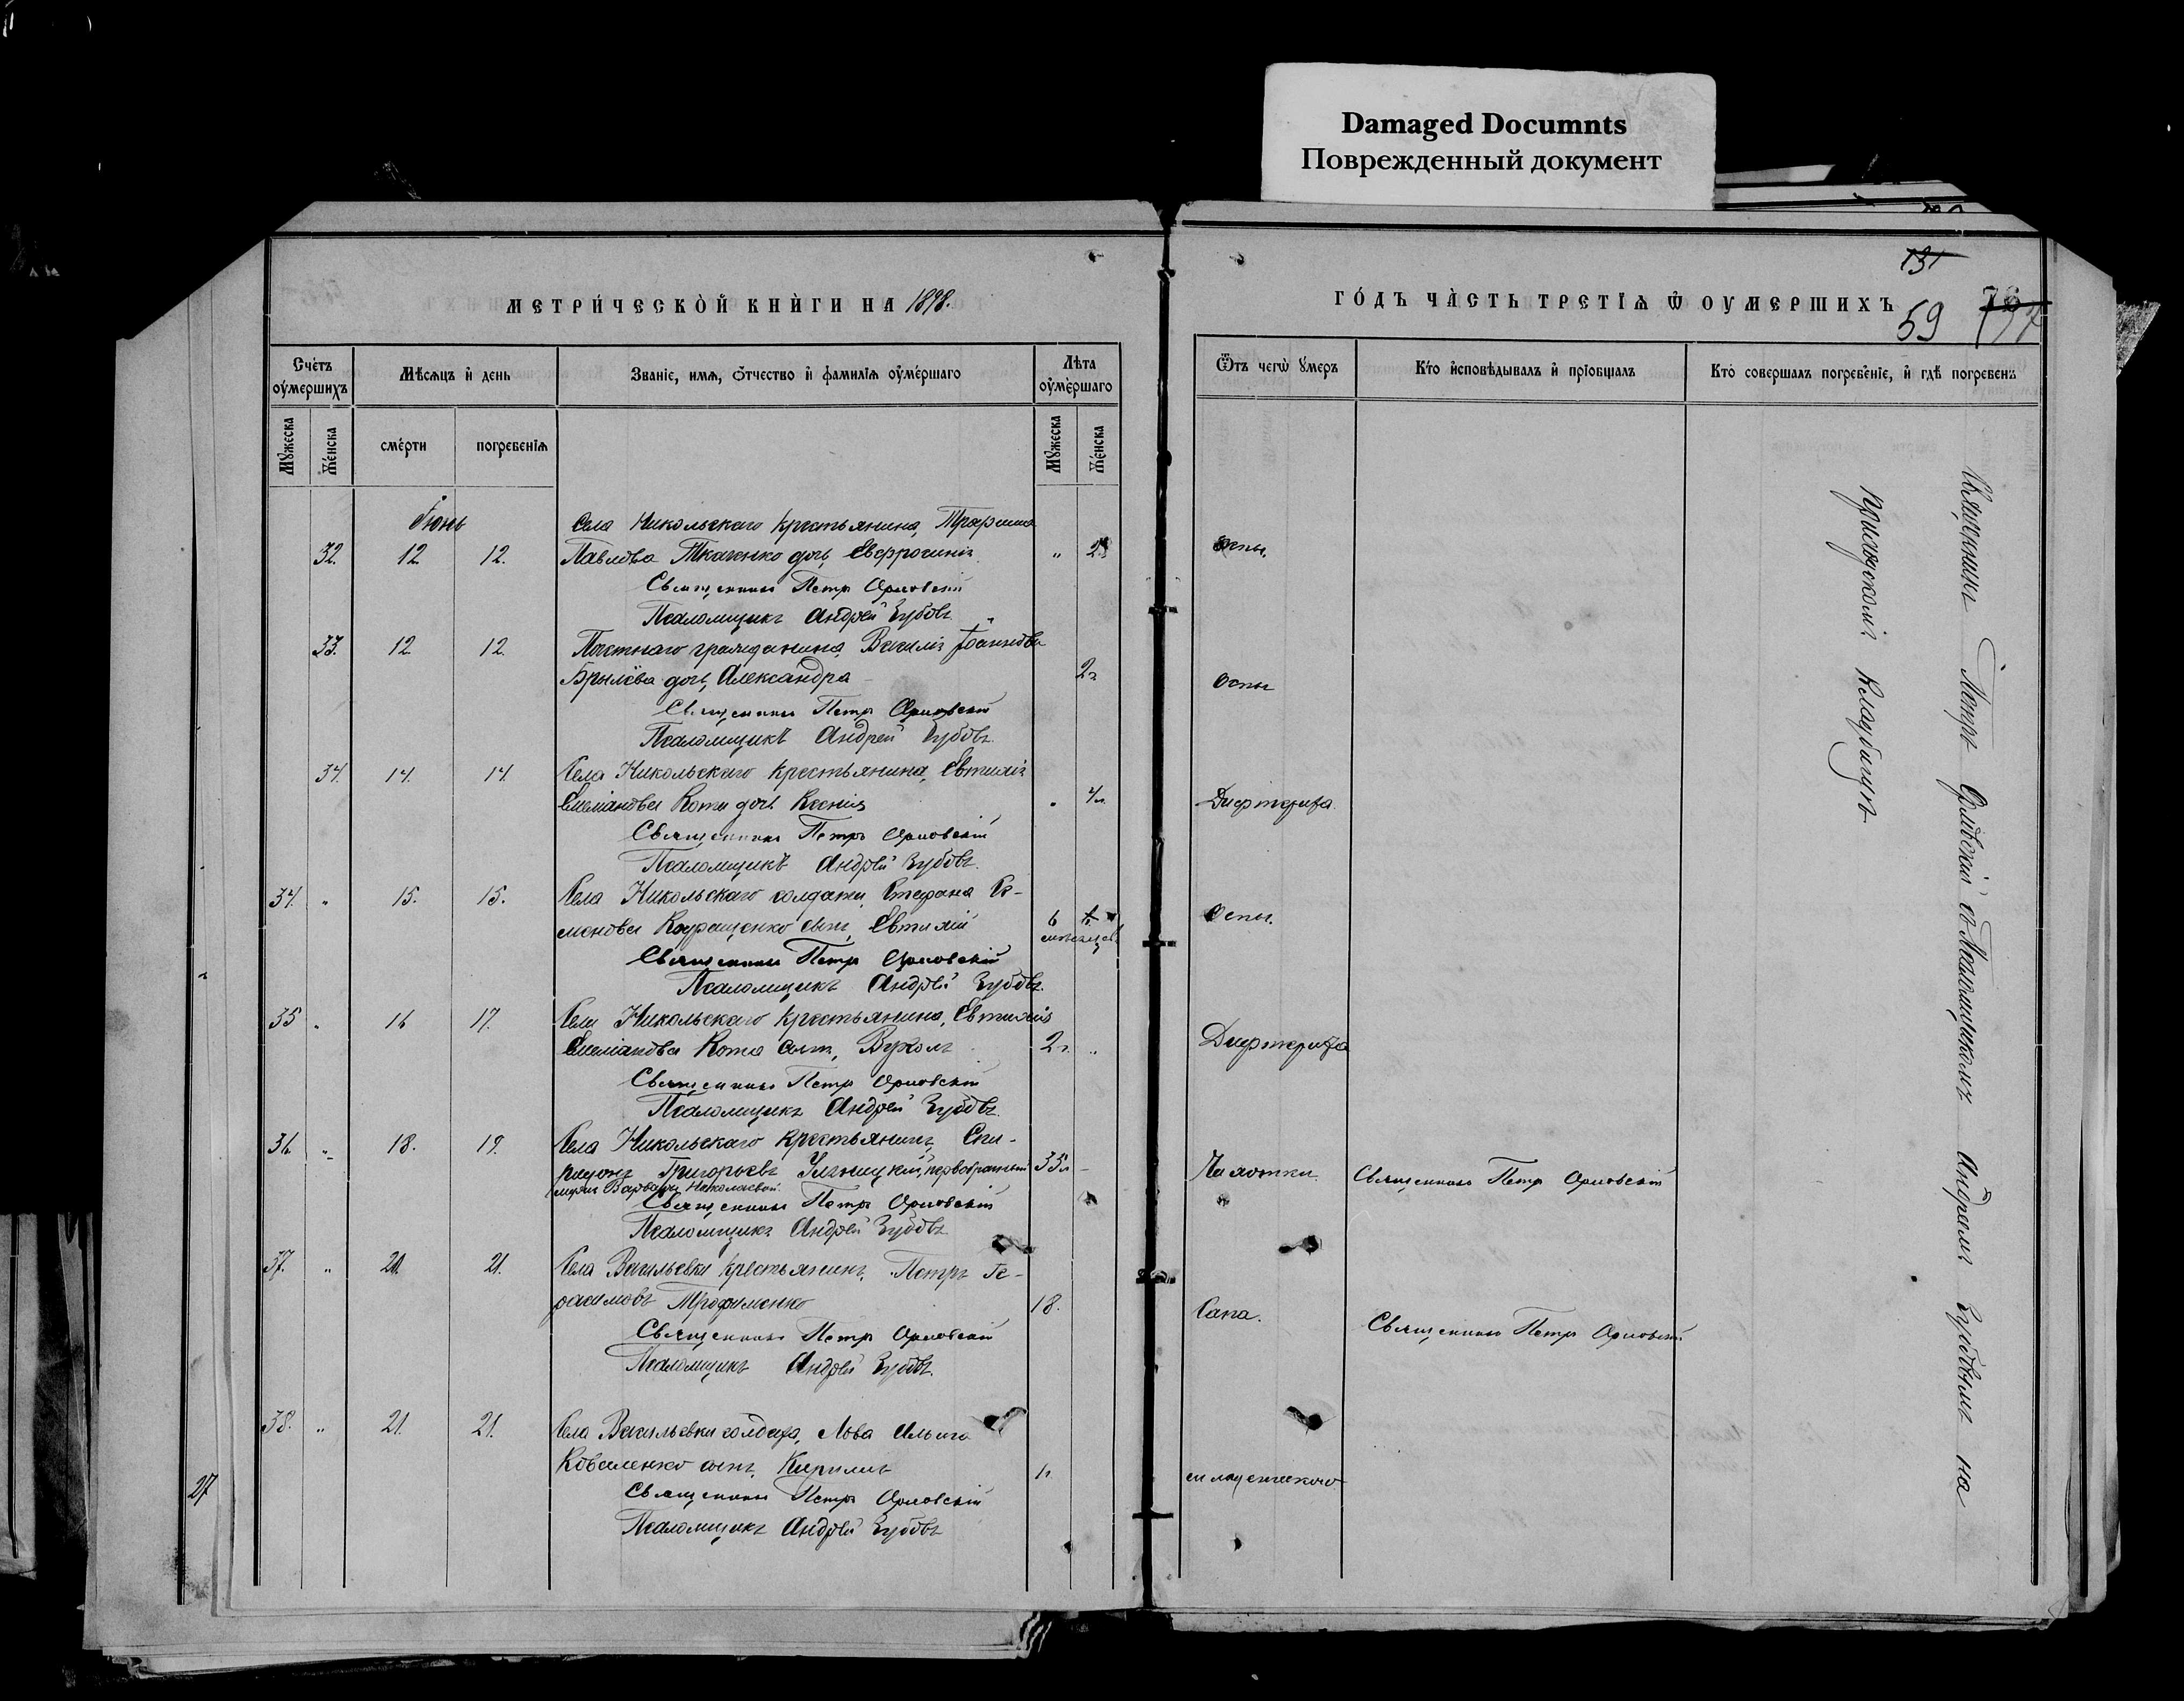 Damaged Documnts
Поврежденный документ
МЕТРИ́ЧЕСКО̀Й КНЍГИ НА 1898.
ГО́ДЪ ЧА̀СТЬ ТРЕТІѦ Ѿ ОУМЕРШИХЪ
131
59
Счетъ оумершихъ
Мѣсяцъ и день
Званіе, имя, отчество и фамилія оумершаго
Лѣта оумершаго
Отъ чегѡ умеръ
Кто исповѣдывалъ и пріобщалъ
Кто совершалъ погребеніе, и гдѣ погребенъ
Мужеска
Женска
смерти
погребенія
Мужеска
Женска
Іюнь
Села Никольскаго крестьянина, Трофима
32. 12. 12. Павлова Ткаченко дочь, Евфросинія „ Оспы.
Священникъ Петръ Орловскій
Псаломщикъ Андрей Зубовъ
33. 12 12. Почетнаго гражданина Василія Іоаннова
Брылёва дочь, Александра 2г Оспы
Священникъ Петръ Орловскій
Псаломщикъ Андрей Зубовъ.
34. 14. 14. Села Никольскаго крестьянина, Евтихія
Емеліанова Кота дочь Ксенія 4л. Дифтерита.
Священникъ Петръ Орловскій
Псаломщикъ Андрей Зубовъ.
34. „ 15. 15. Села Никольскаго солдата, Стефана Се-
менова сынъ, Евтихій 6 мѣсяцев Оспы.
Священникъ Петръ Орловскій
Псаломщикъ Андрей Зубовъ.
35 „ 16 17. Села Никольскаго крестьянина, Евтихія
Емеліанова Кота сынъ, Вуколъ 2г. „ Дифтерита
Священникъ Петръ Орловскій
Псаломщикъ Андрей Зубовъ.
36. „ 18. 19. Села Никольскаго крестьянинъ, Спи-
ридонъ Григорьевъ первобрачный 35л Чахотки. Священникъ Петръ Орловскій
мужъ Варвары Николаевой.
Священникъ Петръ Орловскій
Псаломщикъ Андрей Зубовъ
37. „ 21. 21. Села Васильевки крестьянинъ, Петръ Ге-
расимовъ Трофименко 18. Сапа. Священникъ Петръ Орловскій
Священникъ Петръ Орловскій
Псаломщикъ Андрей Зубовъ.
38. „ 21. 21. Села Васильевки солдата, Льва Ильина
Коваленко сынъ, Кириллъ младенческаго
Священникъ Петръ Орловскій
Псаломщикъ Андрей Зубовъ
27
Священникъ Петръ Орловскій съ Псаломщикомъ Андреемъ Зубовымъ на
приходскомъ кладбищѣ